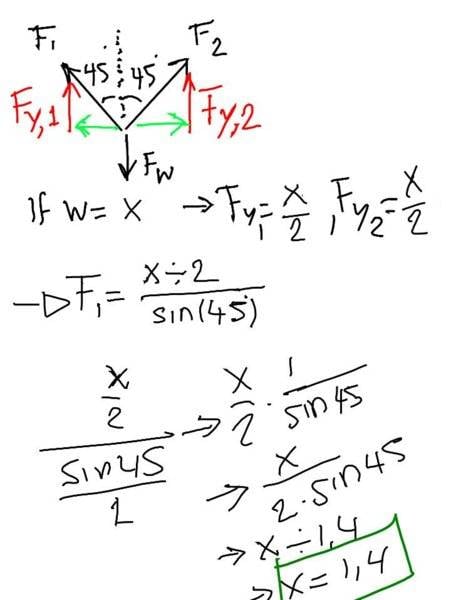 F₁ F₂
45° 45°
Fy,1 Fy,2
Fw
If W = x → Fy₁ = x/2 , Fy₂ = x/2
→ F₁ = x÷2 / sin(45°)
x/2 / sin45/1 → x/2 · 1/sin45
→ x / 2·sin45
→ x ÷ 1,4
→ x = 1,4